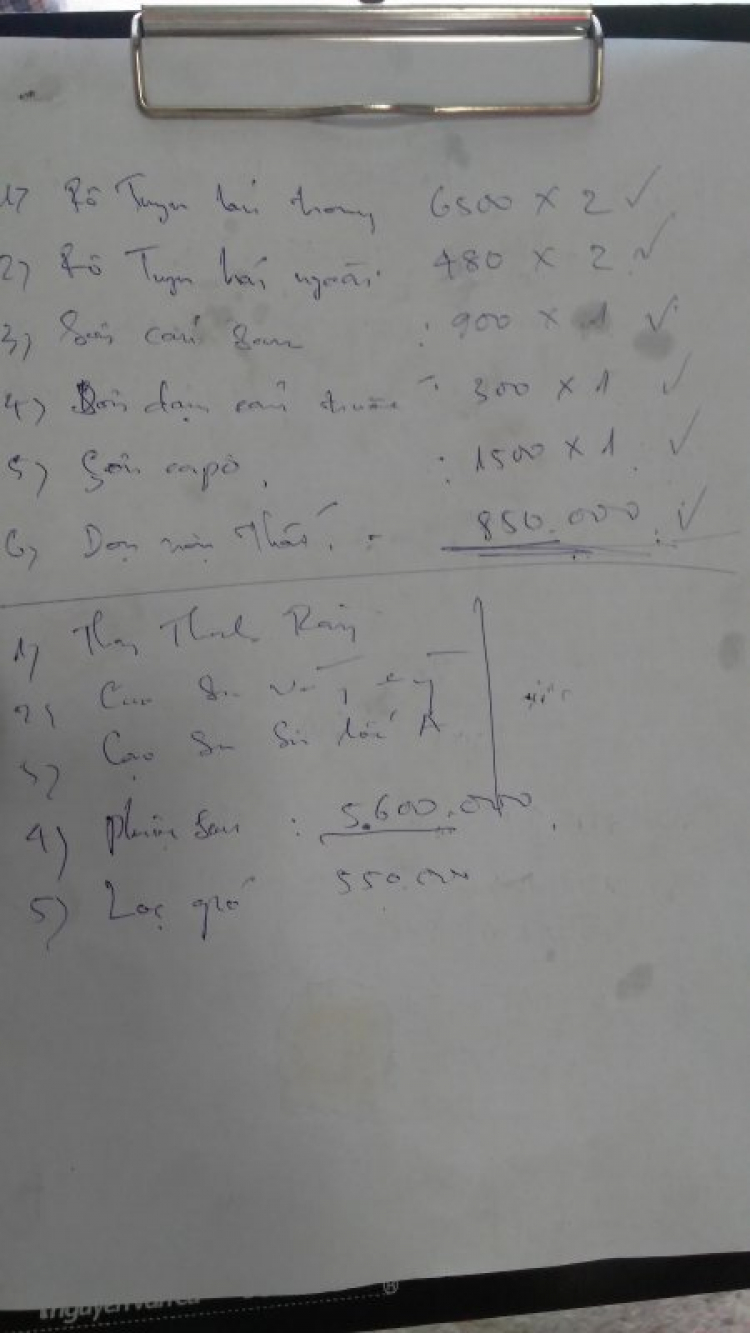 1) Rô Tuyn lái trong 6500 x 2 ✓
2) Rô Tuyn lái ngoài 480 x 2 ✓
3) Sơn cản sau : 900 x 1 ✓
4) Sơn dặm cản trước : 300 x 1 ✓
5) Sơn capo : 1500 x 1 ✓
6) Dọn nội thất : 850.000 ✓
1) Thay Thanh Răng
2) Cao Su
3) Cao Su A
4) phuộc sau : 5.600.000
5) Lọc gió 550.000
®